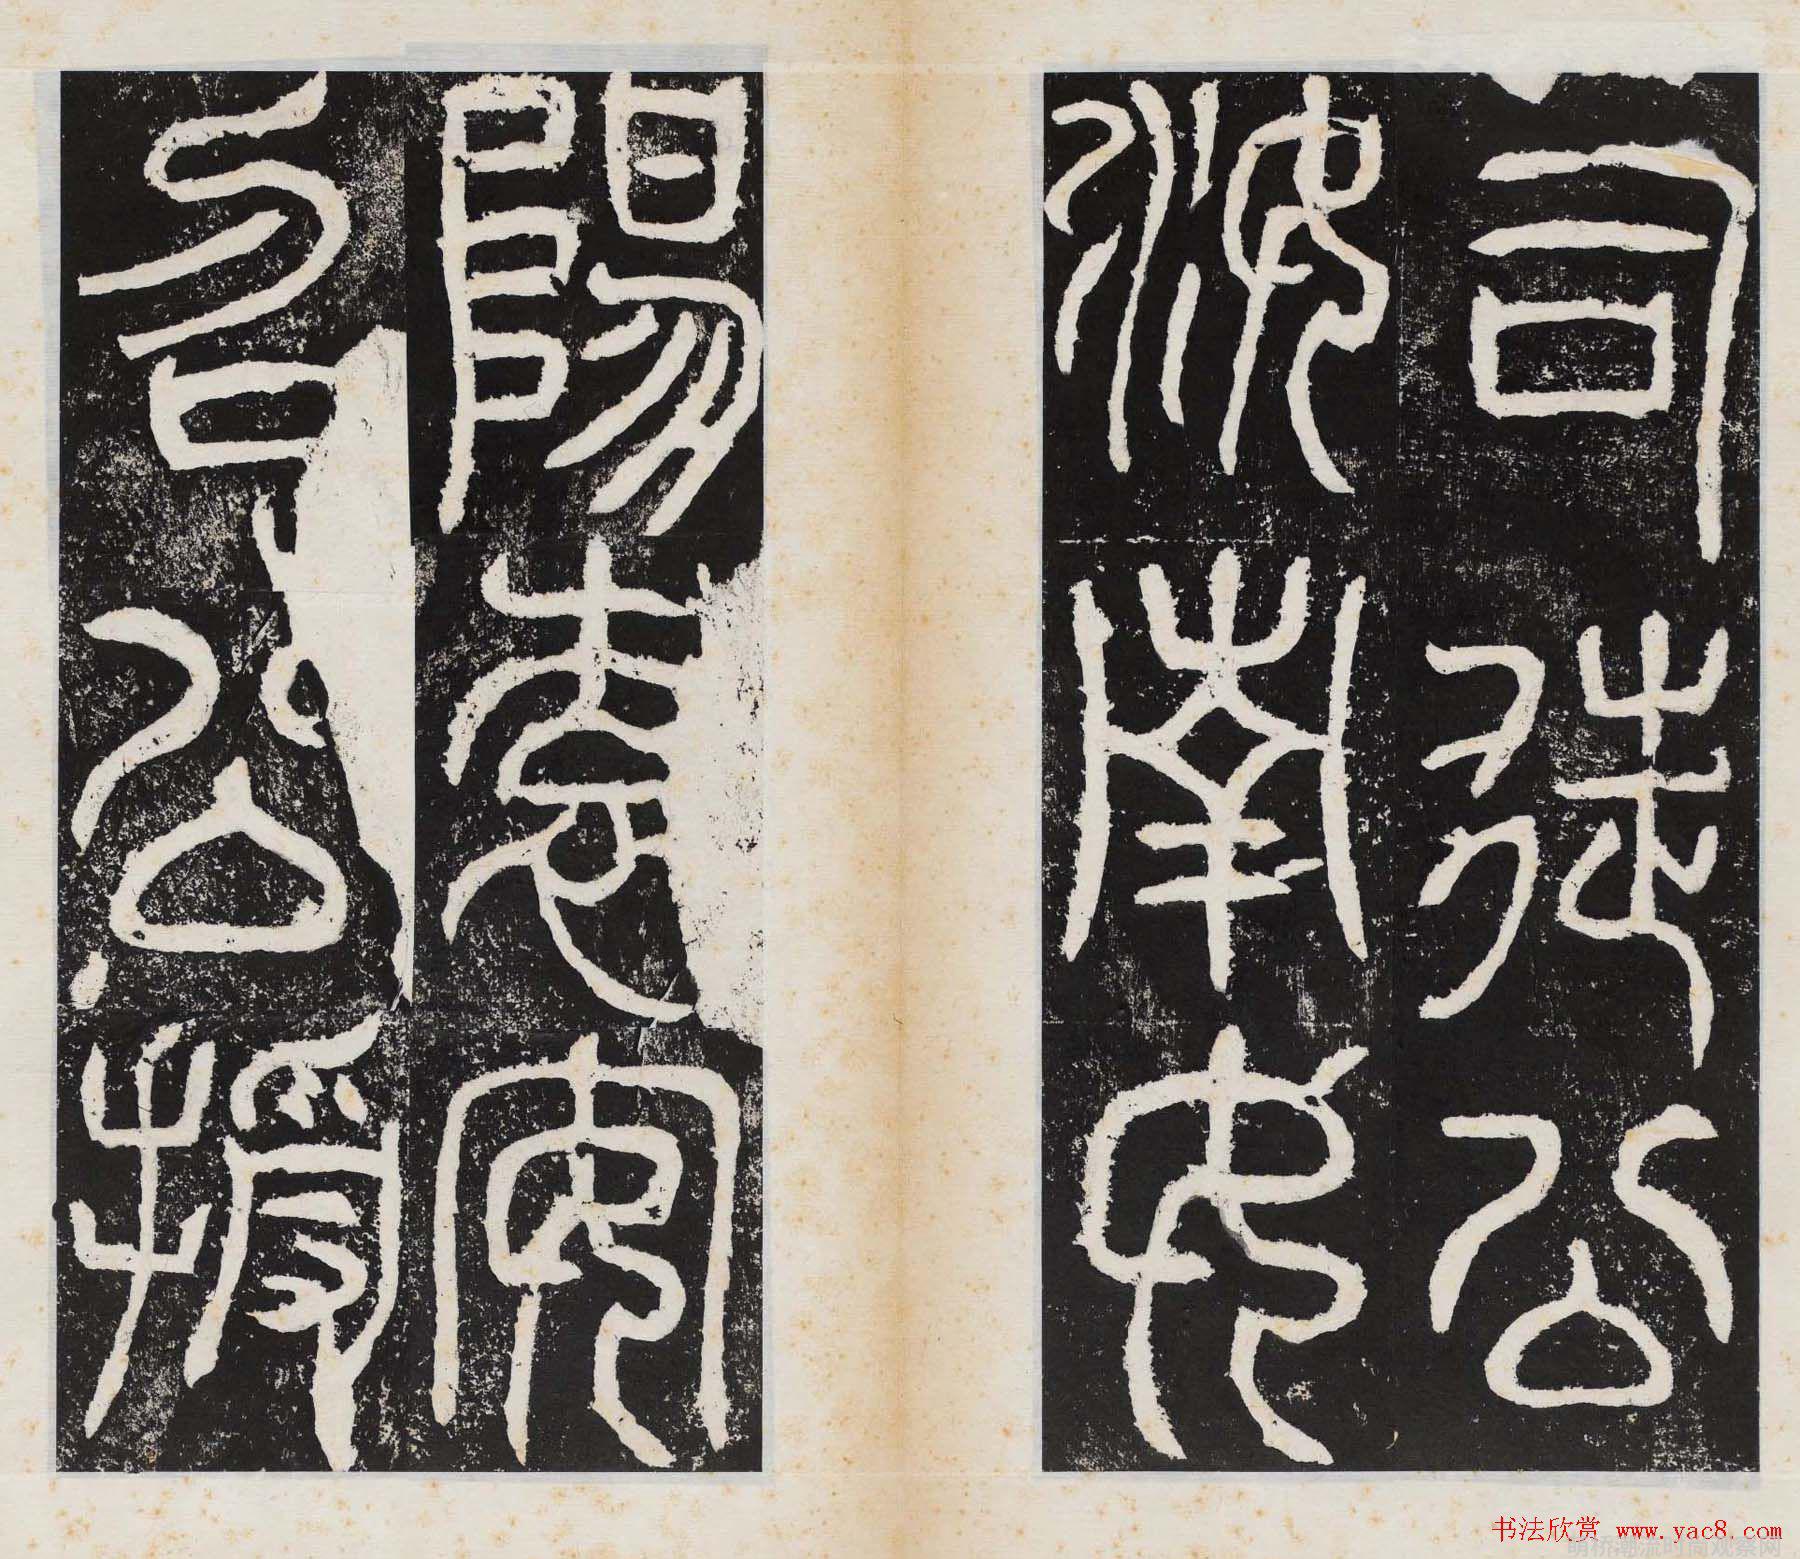 司徒公
汝南女
陽袁安
召公授
书法欣赏 www.yac8.com